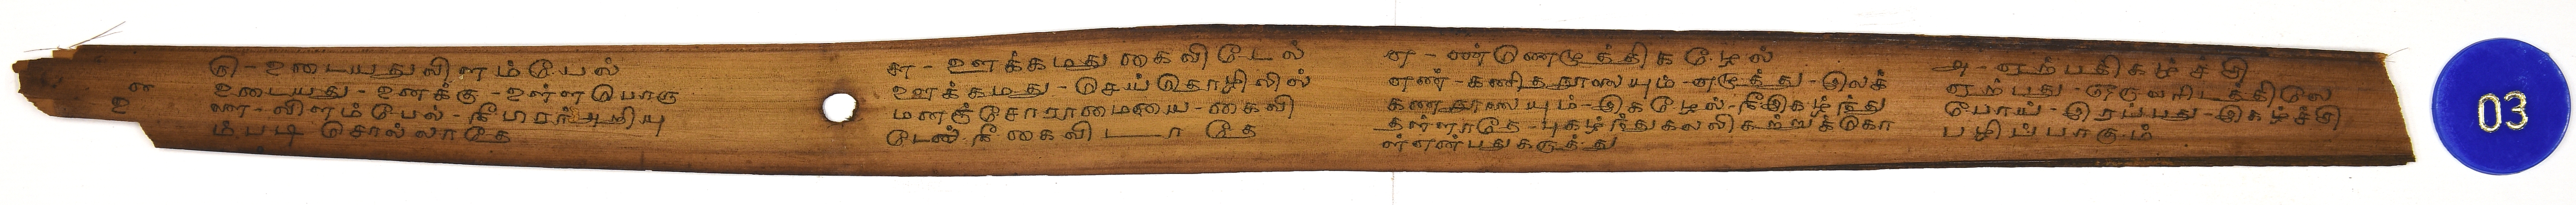 ௫ - உடையதுவிளம்பேல்
உடையது - உனக்கு - உள்ளபொரு
ளை - விளம்பேல் - நீ பிறர்அறியு
ம்படி சொல்லாதே
௬ - ஊக்கமதுகைவிடேல்
ஊக்கமது - செய்தொழிலில்
மனஞ்சோராமையை - கைவி
டேல் - நீ கைவிடாதே
௭ - எண்ணெழுத்திகழேல்
எண் - கணிதநூலையும் - எழுத்து - இலக்
கணநூலையும் - இகழேல் - நீஇகழ்ந்து
தள்ளாதே - புகழ்ந்துகலவிகற்றுக்கொ
ள்என்பதுகருத்து
௮ - ஏற்பதிகழ்ச்சி
ஏற்பது - ஒருவரிடத்திலே
போய் - இரப்பது - இகழ்ச்சி
பழிப்பாகும்
03